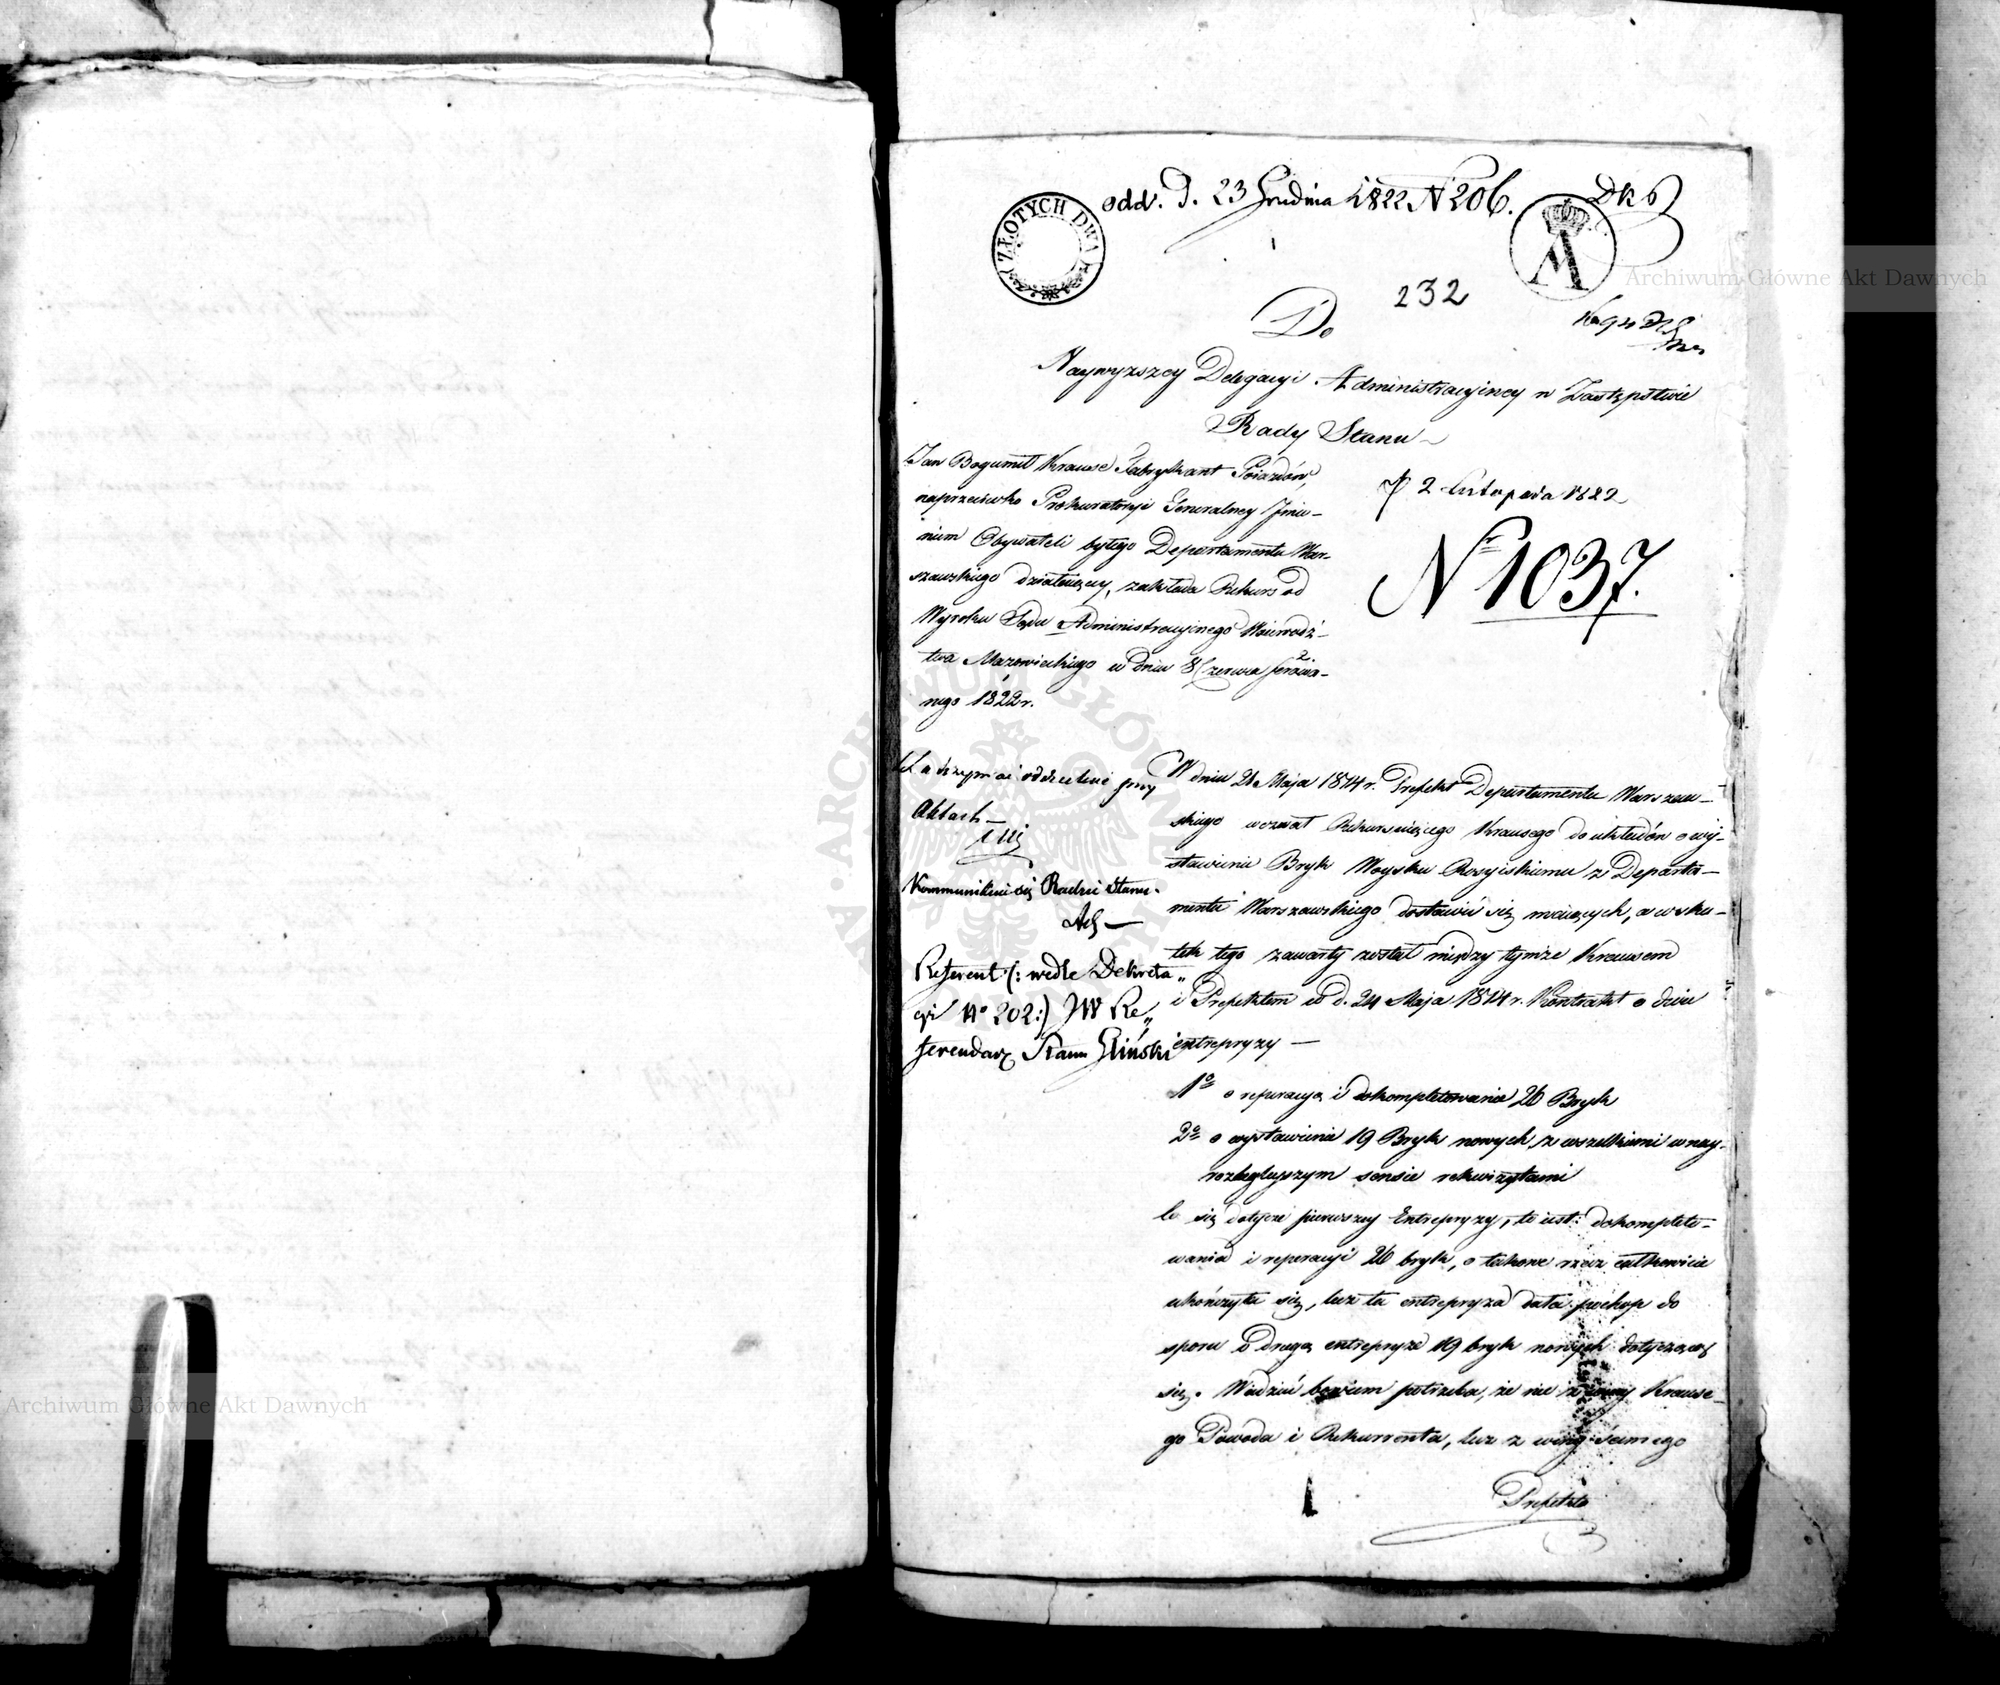 odd. D. 23 Grudnia 1822 N 206.
Dk 6
ZŁOTYCH DWA
232
Do
Naywyższey Delegacyi Administracyiney w Zastępstwie
Rady Stanu
Jan Bogumił Krause Fabrykant Poiazdów,
naprzeciwko Prokuratoryi Generalney Jmie-
niem Obywateli byłego Departamentu War-
szawskiego działaiącey, zakłada Rekurs od
Wyroku Sądu Administracyjnego Woiewódz-
twa Mazowieckiego w dniu 8 Czerwca ferowa-
nego 1822 r.
2 Listopada 1822
Nr 1037.
Aktach
Kommunikuie się Radzie Stanu.
Referent (: wedle Dekreta„
cyi No 202:) JW Re„
ferendarz Stanu Gliński
W dniu 21 Maja 1814 r. Prefekt Departamentu Warszaw-
skiego wezwał Rekursuiącego Krausego do układów o wy-
stawienie Bryk Woysku Rosyiskiemu z Departa-
mentu Warszawskiego dostawić się maiących, a wsku-
tek tego zawarty został między tymże Krausem
i Prefektem w d. 24 Maja 1814 r. Kontrakt o dwie
entrepryzy —
1o o reperacyą i dokompletowanie 26 Bryk
2o o wystawienie 19 Bryk nowych, z wszelkiemi w nay-
rozległeyszym sensie rekwizytami
Co się dotycze pierwszey Entrepryzy, to iest: dokompleto-
wania i reperacyi 26 bryk, o takowe rzecz całkowicie
ukończyła się, lecz ta entrepryza dała pochop do
sporu o drugą entrepryzę 19 bryk nowych dotyczącą
się. Wiedzieć bowiem potrzeba, że nie z winy Krause-
go Powoda i Rekurrenta, lecz z winy samego
Prefekta
Archiwum Główne Akt Dawnych
Archiwum Główne Akt Dawnych